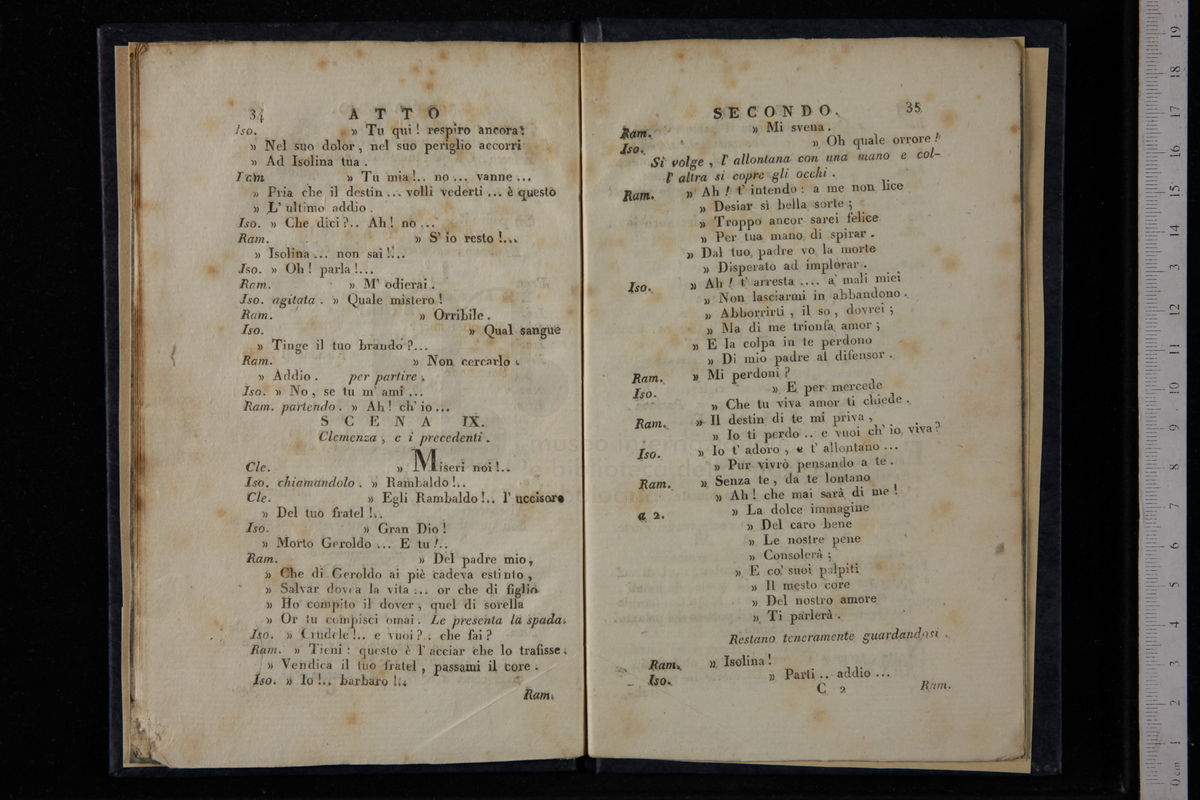 34 ATTO
Iso. » Tu qui ! respiro ancora:
» Nel suo dolor , nel suo periglio accorri
» Ad Isolina tua .
Ram » Tu mia !.. no ... vanne ...
» Pria che il destin ... volli vederti ... è questo
» L' ultimo addio .
Iso. » Che dici ?.. Ah ! no ...
Ram. » S' io resto !...
» Isolina ... non sai !...
Iso. » Oh ! parla !...
Ram. » M' odierai .
Iso. agitata . » Quale mistero !
Ram. » Orribile .
Iso. » Qual sangue
» Tinge il tuo brando ?...
Ram. » Non cercarlo .
» Addio . per partire .
Iso. » No , se tu m' ami ...
Ram. partendo . » Ah ! ch' io ...
SCENA IX.
Clemenza , e i precedenti .
Cle. » Miseri noi !..
Iso. chiamandolo . » Rambaldo !..
Cle. » Egli Rambaldo !.. l' uccisore
» Del tuo fratel !..
Iso. » Gran Dio !
» Morto Geroldo ... E tu !..
Ram. » Del padre mio,
» Che di Geroldo ai piè cadeva estinto ,
» Salvar dovea la vita ... or che di figlio
» Ho compito il dover , quel di sorella
» Or tu compisci omai . Le presenta la spada.
Iso. » Crudele !.. e vuoi ? . che fai ?
Ram. » Tieni : questo è l' acciar che lo trafisse.
» Vendica il tuo fratel , passami il core .
Iso. » Io !.. barbaro !..
Ram.
SECONDO. 35
Ram. » Mi svena .
Iso. » Oh quale orrore !
Si volge , l' allontana con una mano e col-
l' altra si copre gli occhi .
Ram. » Ah ! t' intendo : a me non lice
» Desiar sì bella sorte ;
» Troppo ancor sarei felice
» Per tua mano di spirar .
» Dal tuo padre vo la morte
» Disperato ad implorar .
Iso. » Ah ! t' arresta .... a' mali miei
» Non lasciarmi in abbandono .
» Abborrirti , il so , dovrei ;
» Ma di me trionfa amor ;
» E la colpa in te perdono
» Di mio padre al difensor .
Ram. » Mi perdoni ?
Iso. » E per mercede
» Che tu viva amor ti chiede .
Ram. » Il destin di te mi priva ,
» Io ti perdo .. e vuoi ch' io viva ?
Iso. » Io t' adoro , e t' allontano ...
» Pur vivrò pensando a te .
Ram. » Senza te , da te lontano
» Ah ! che mai sarà di me !
a 2. » La dolce immagine
» Del caro bene
» Le nostre pene
» Consolerà ;
» E co' suoi palpiti
» Il mesto core
» Del nostro amore
» Ti parlerà .
Restano teneramente guardandosi .
Ram. » Isolina !
Iso. » Parti .. addio ...
C 2 Ram.